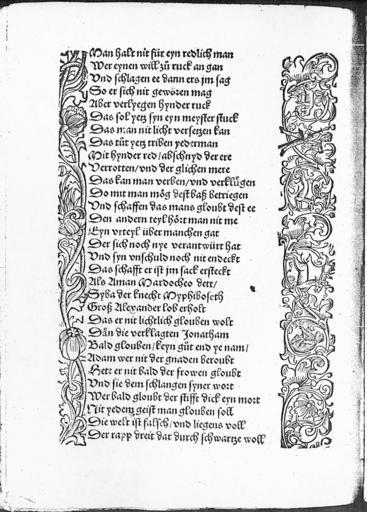 Man halt nit für eyn redlich man
Wer eynen will zů ruck an gan
Vnd schlagen ee dann ers jm sag
So er sich nit geweren mag
Aber verlyegen hynder ruck
Das sol yetz syn eyn meyster stuck
Das man nit licht versetzen kan
Das tůt yetz triben yederman
Mit hynder red / abschnyd der ere
Verrotten / vnd der glichen mere
Das kan man verben / vnd verklůgen
Do mit man mög dest baß betriegen
Vnd schaffen das mans gloubt dest ee
Den andern teyl hört man nit me
Eyn vrteyl über manchen gat
Der sich noch nye verantwürt hat
Vnd syn vnschuld noch nit endeckt
Das schafft er ist jm sack ersteckt
Als Aman Mardocheo dett /
Syba der knecht Myphiboseth
Groß Alexander lob erholt
Das er nit lichtlich glouben wolt
Dån die verklagten Jonatham
Bald glouben / keyn gůt end ye nam /
Adam wer nit der gnaden beroubt
Hett er nit bald der frowen gloubt
Vnd sie dem schlangen syner wort
Wer bald gloubt der stifft dick eyn mort
Nit yedem geist man glouben soll
Die welt ist falsch / vnd liegens voll
Der rapp dreit dar durch schwartze woll